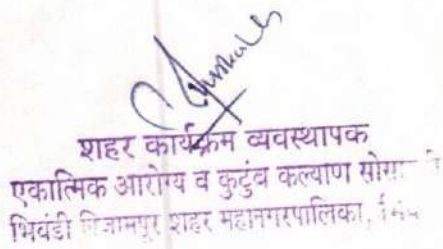 शहर कार्यक्रम व्यवस्थापक
एकात्मिक आरोग्य व कुटुंब कल्याण
भिवंडी निजामपूर शहर महानगरपालिका,